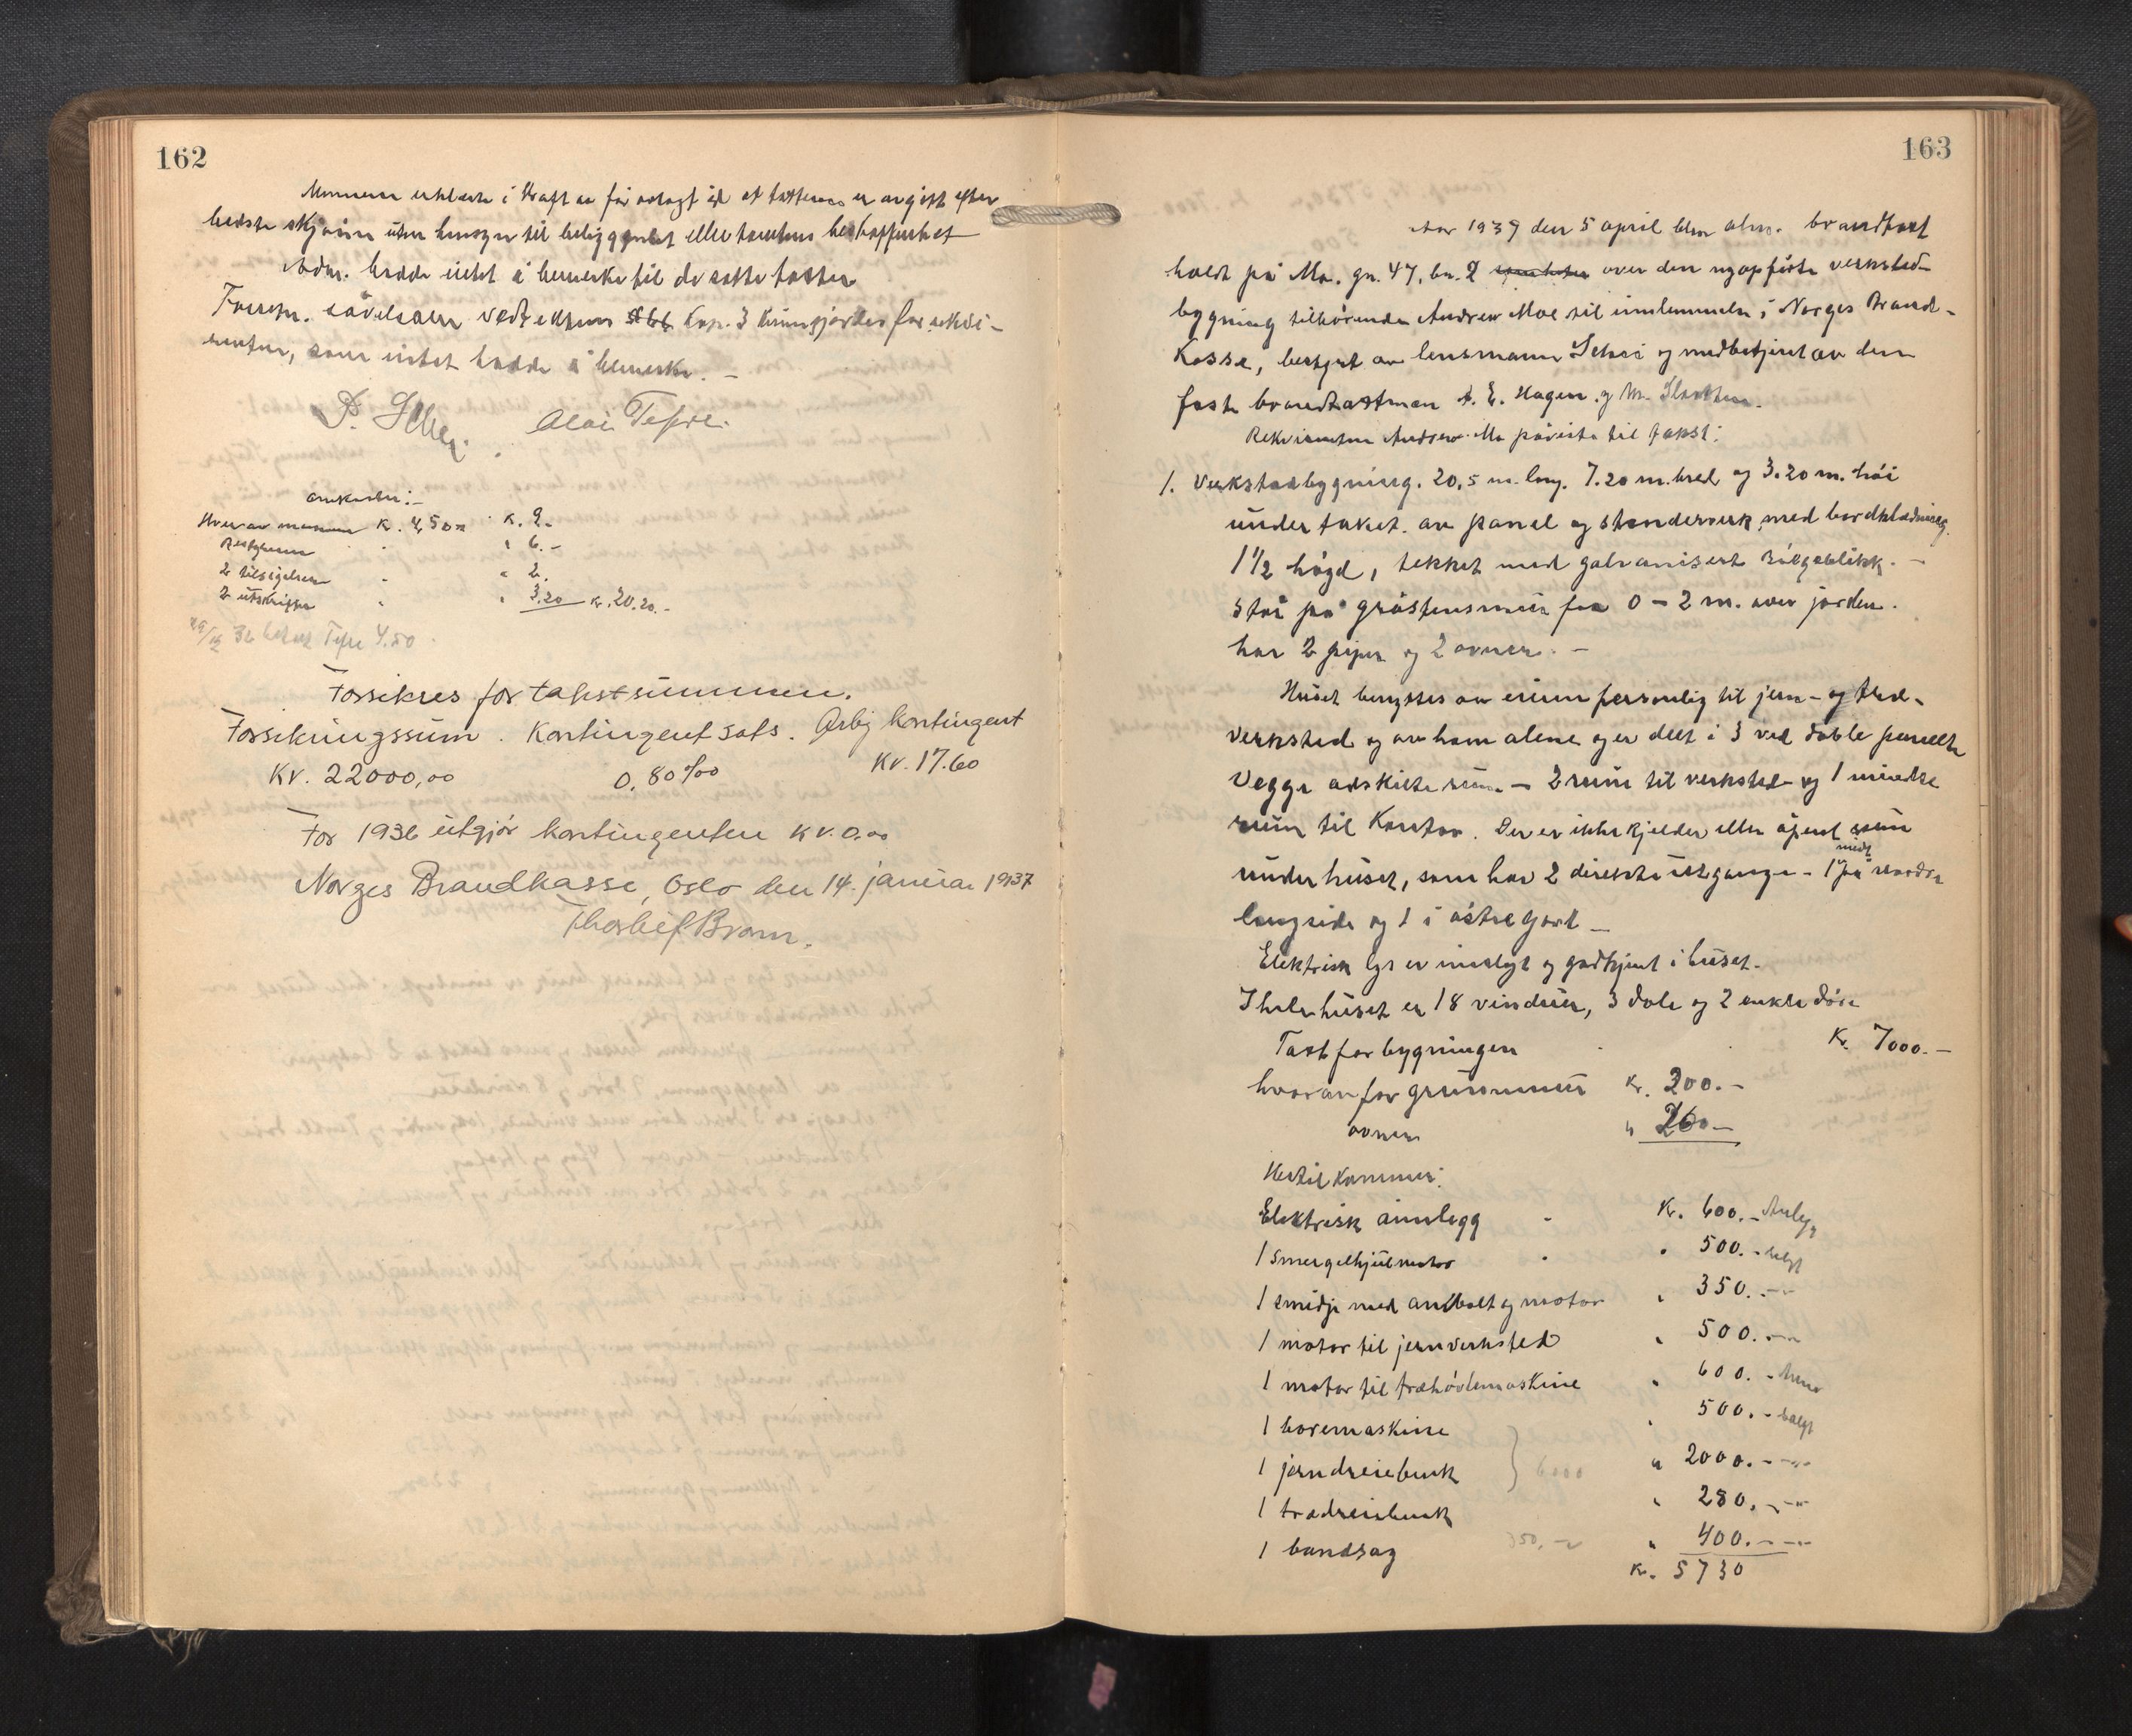 162
Mennene erklærte i kraft av før avlagt ed at taksterne er avgitt efter
bedste skjønn uten hensyn til beliggenhet eller tomtens beskaffenhet
Adm. hadde intet å bemerke til de satte takster
Forsegl. såvelsom vedtektenes kap. 3 kunngjordes for rekvi-
renten, som intet hadde å bemerke. –
Olai Tefre.
Omkostn.:–
Hver av mennene Kr. 4,50 = Kr. 9.–
Bestyreren " 6.–
2 tilsigelser " 2.
2 utskrifter " 3.20 Kr. 20.20.–
36 betalt Tefre 4.50
Forsikres for takstsummen.
Forsikringssum. Kontingentsats. Årlig kontingent
Kr. 22000,00 0,80 ‰ Kr. 17.60
For 1936 utgjør kontingenten Kr. 0.00
Norges Brandkasse, Oslo den 14. januar 1937
Thorleif Bram.
163
Aar 1937 den 5 april blev alm. brandtakst
holdt på Mo. gn. 47, bn. 2 over den nyopførte verksted-
bygning tilhørende Andreas Moe til innlemmelse i Norges Brand-
kasse, bestyrt av lensmann og medbetjent av den
faste brandtakstmenn E. Hagen og M. Slotten.
Rekvirenten Andreas Mo påviste til takst:
1. Verkstedbygning. 20,5 m. lang. 7.20 m. bred og 3.20 m. høi
under taket. av panel og stenderverk med bordklædning.
1 1/2 høgd, tekket med galvanisert bølgeblikk. –
Står på gråstensmur fra 0 – 2 m. over jorden.
har 2 piper og 2 ovner. –
Huset benyttes av eieren personlig til jern- og træ-
verksted og av ham alene og er delt i 3 ved doble panelte
vegge adskilte rum – 2 rum til verksted og 1 mindre
rum til kontor. Der er ikke kjelder eller åpent rum
under huset, som har 2 direkte utgange – 1 midt på nordre
langside og 1 i østre gavl –
Elektrisk lys er innlagt og godkjent i huset.
I hele huset er 18 vinduer, 3 doble og 2 enkle døre
Takst for bygningen Kr. 7000.–
hvorav for grunnmur Kr. 200.–
ovner " 260.–
Hertil kommer:
Elektrisk innlegg Kr. 600.–
1 smergelhjulmotor " 500.– solgt
1 smidje med ambolt og motor " 350.–
1 motor til jernverksted " 500.–
1 motor til træhøvlemaskine " 600.–
1 boremaskine " 500.– solgt
1 jerndreiebenk 6000 " 2000.–
1 trædreiebenk " 280.–
1 bandsag 350,– " 400.–
Kr. 5730